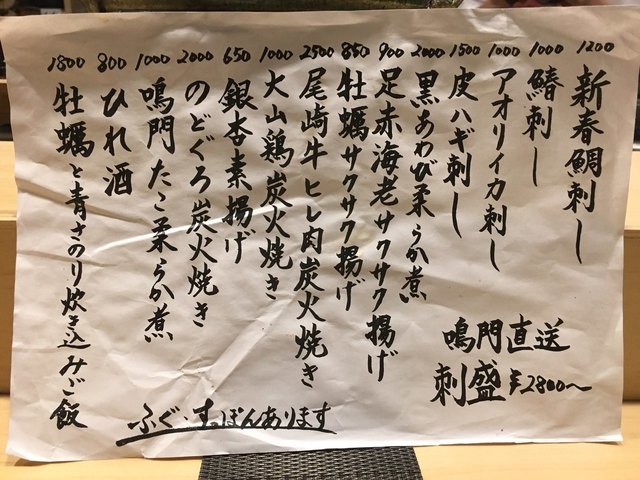 1200 新春鯛刺し
1000 鰆刺し
1000 アオリイカ刺し
1500 皮ハギ刺し
2000 黒あわび柔らか煮
900 足赤海老サクサク揚げ
850 牡蠣サクサク揚げ
2500 尾崎牛ヒレ肉炭火焼き
1000 大山鶏炭火焼き
650 銀杏素揚げ
2000 のどぐろ炭火焼き
1000 鳴門たこ柔らか煮
800 ひれ酒
1800 牡蠣と青さのり炊き込みご飯
鳴門直送
刺盛 ¥2800〜
ふぐ・すっぽんあります